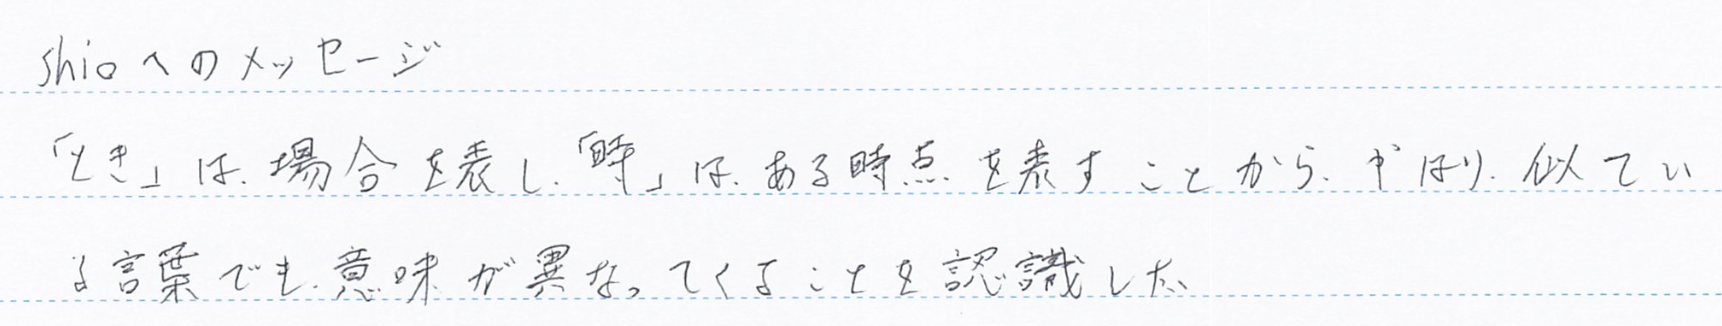 shioへのメッセージ
「とき」は、場合を表し、「時」は、ある時点を表すことから、やはり、似てい
る言葉でも、意味が異なってくることを認識した。